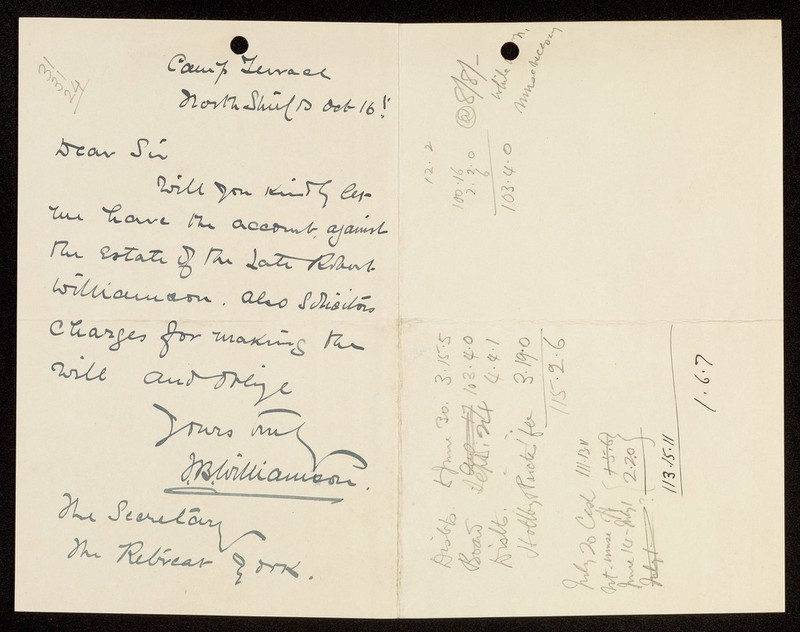 331
331
24
Camp Terrace
North Shields Oct 16!
Dear Sir
Will you kindly let
me have the account, against
the Estate of the Late Robert
Williamson. also Solicitors
Charges for making the
Will and oblige
Yours truly
J.B. Williamson.
The Secretary
The Retreat York.
12.2
100.16
2.2.0
6
@ 8/8/-
103.4.0
while
unnecessary
Disbts. to June 30. 3.15.5
Board Sept. 24 103.4.0
Disbts. 4.4.1
Holby & Procter fee 3.19.0
115.2.6
July 20 Cash
June 14 - July 1
2.2.0
July 1
113.15.11
1.6.7